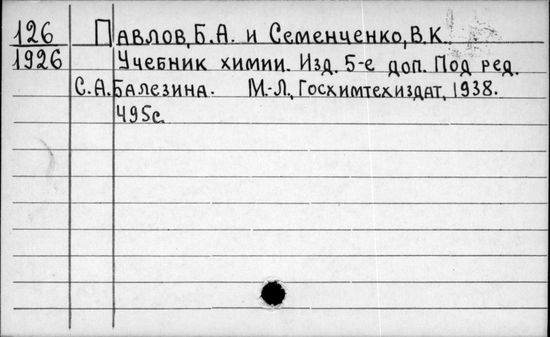 126 Павлов, Б.А. и Семенченко, В.К.
1926 Учебник химии. Изд. 5-е доп. Под ред.
С.А. Балезина. М.-Л., Госхимтехиздат, 1938.
495с.